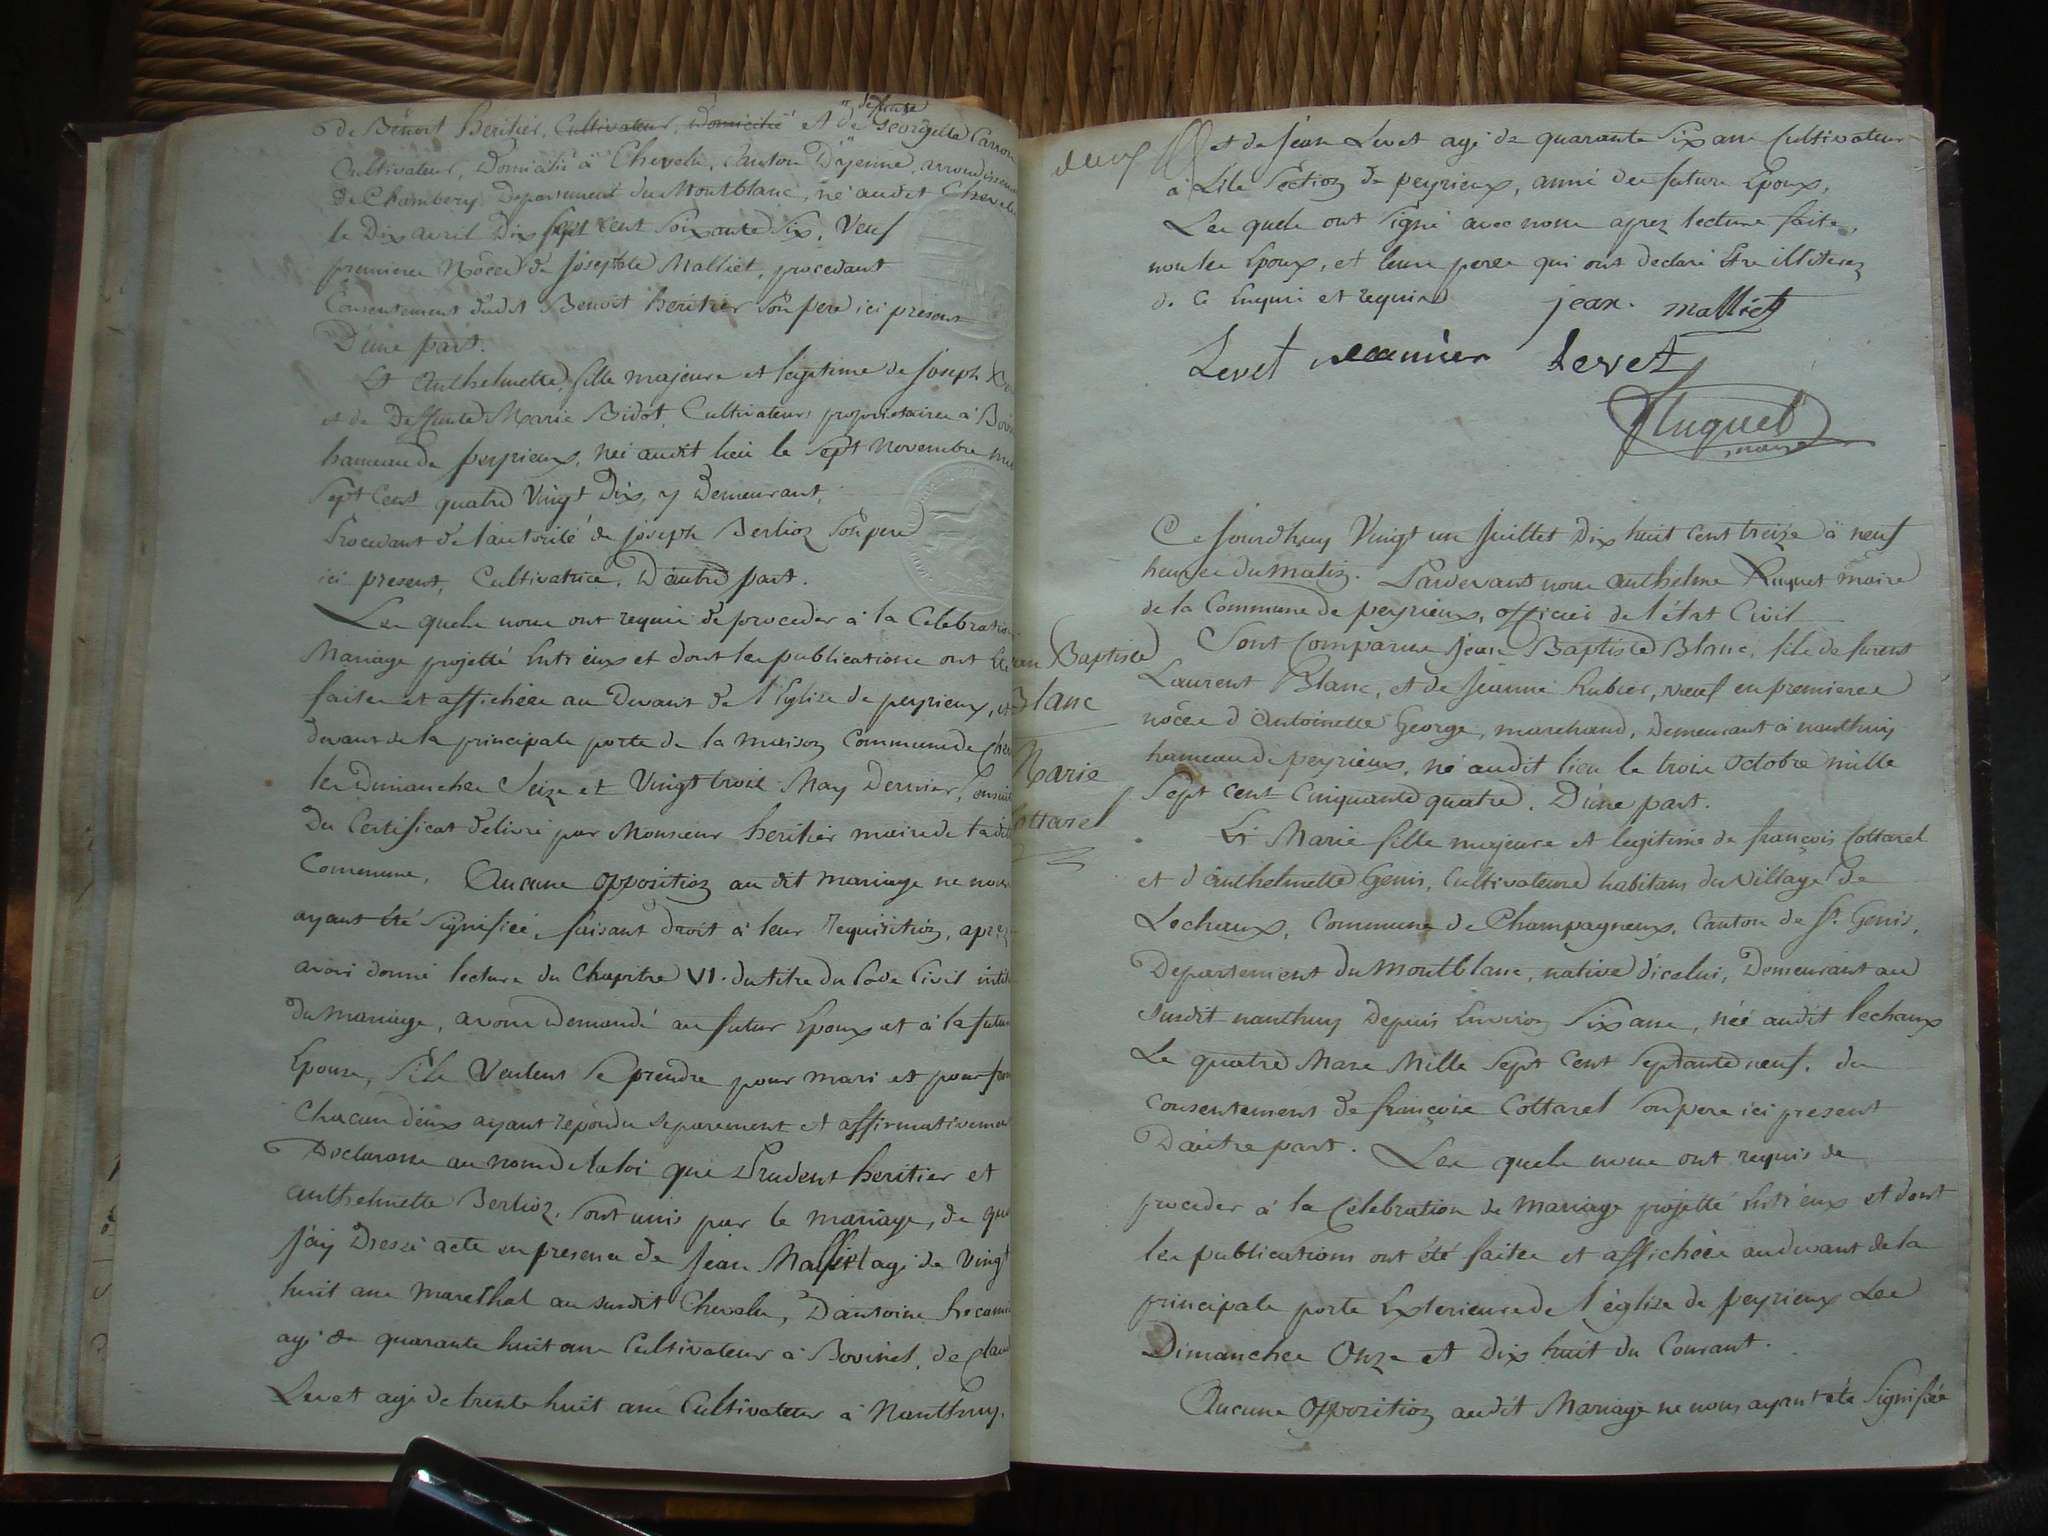 de Benoit heritier, Cultivateur, Domicilié et de deffunte Georgette Carron
Cultivateur, Domicilié à Chevelu, Canton D'yenne, arrondissem
de Chambery Departement du Montblanc, né audit Chevelu
le Dix avril Dix sept cent soixante Six, Veuf
premieres Nôces de Josephte Malliet, procedant
Consentement dudit Benoit heritier son pere ici present
D'une part.
Et Anthelmette fille majeure et legitime de Joseph
et de Deffunte Marie Bidot, Cultivateurs proprietaires à Bovi
hameau de peyrieux, née audit lieu le Sept Novembre mil
Sept Cent quatre Vingt Dix, y Demeurant,
Procedant de l'autorité de joseph Berlioz Son pere
ici present, Cultivatrice. D'autre part.
Les quels nous ont requis de proceder à la Celebration
Mariage projetté Entr'eux et dont les publications ont été
faites et affichées au Devant de l'Eglise de peyrieux, et
devant de la principale porte de la maison Commune de Chev
les Dimanches Seize et Vingt trois May Dernier,
Du Certificat délivré par Monsieur heritier maire de ladit
Commune. Aucune opposition au dit mariage ne nous
ayant été Signifiée, faisant droit à leur requisition, aprez
avoir donné lecture du Chapitre VI. du titre du Code Civil intit
du mariage, avons Demandé au futur Epoux et à la future
Epouse, S'ils Veulent Se prendre pour mari et pour fem
Chacun d'eux ayant repondu separement et affirmativement
Declarons au nom de la loi que Prudent heritier et
anthelmette Berlioz, Sont unis par le mariage, de quoi
j'ay Dressé acte en presence de Jean Malliet agé de Vingt
huit ans Marechal au susdit Chevelu, D'antoine
agé de quarante huit ans Cultivateur à Bovinel, de Claud
Levet agé de trente huit ans Cultivateur à Nanthuy.
et de Jean Levet agé de quarante Six ans Cultivateur
à Lile Section de peyrieux, amis des futurs Epoux,
Les quels ont Signé avec nous aprez lecture faite,
non les Epoux, et leurs peres qui ont declaré Etre illiterez
de Ce Enquis et requis
jean. malliet
Levet Levet
Ruquet
maire
Ce Jourd'huy Vingt un Juillet Dix huit cent treize à neuf
heures du matin. Pardevant nous anthelme Ruquet maire
de la Commune de peyrieux, officier de l'état Civil
jean Baptiste
Blanc
Marie
Cottarel
Sont Comparus Jean Baptiste Blanc, fils de furent
Laurent Blanc, et de Jeanne hubier, veuf en premieres
nôces d'Antoinette George, marchand, Demeurant à nanthuy
hameau de peyrieux, né audit lieu le trois octobre mille
Sept cent Cinquante quatre. D'une part.
Et Marie fille majeure et legitime de françois Cottarel
et d'anthelmette Genis, Cultivateurs habitans du Village de
Lechaux, Commune de Champagneux, Canton de St Genis,
Departement du Montblanc, native d'icelui, Demeurant au
Susdit nanthuy Depuis Environ Six ans, née audit lechaux
Le quatre Mars Mille Sept cent Septante neuf. du
consentement de françois Cottarel Son pere ici present
D'autre part. Les quels nous ont requis de
proceder à la Celebration de Mariage projetté Entr'eux et dont
les publications ont été faites et affichées au devant de la
principale porte Exterieure de l'église de peyrieux Les
Dimanches Onze et Dix huit du Courant.
Aucune opposition audit Mariage ne nous ayant été Signifiée